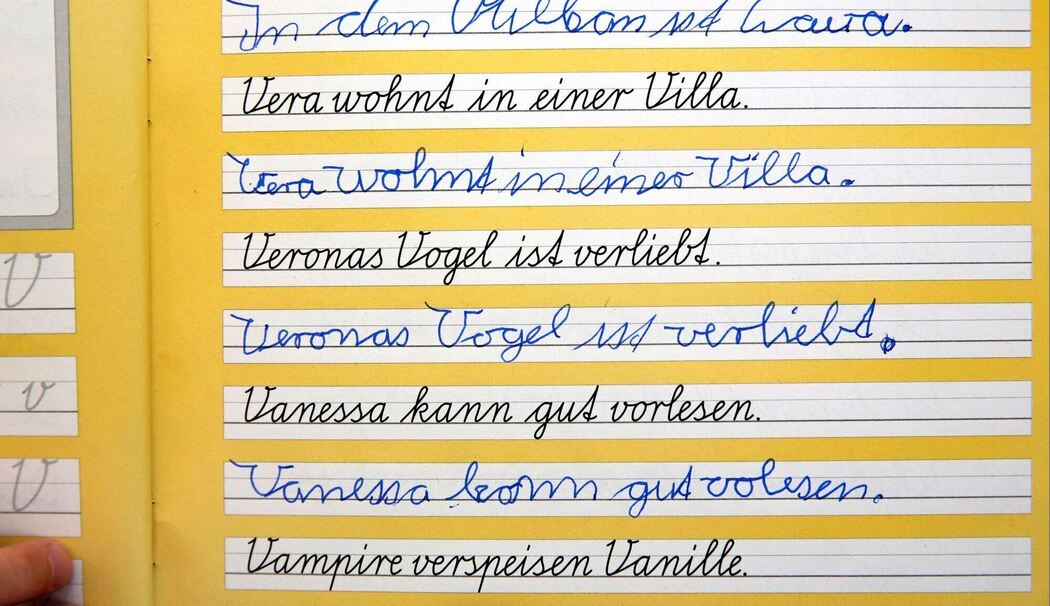 In dem Vulkan ist Lava.
Vera wohnt in einer Villa.
Vera wohnt in einer Villa.
Veronas Vogel ist verliebt.
V
Veronas Vogel ist verliebt.
v
Vanessa kann gut vorlesen.
V
Vanessa kann gut volesen.
Vampire verspeisen Vanille.